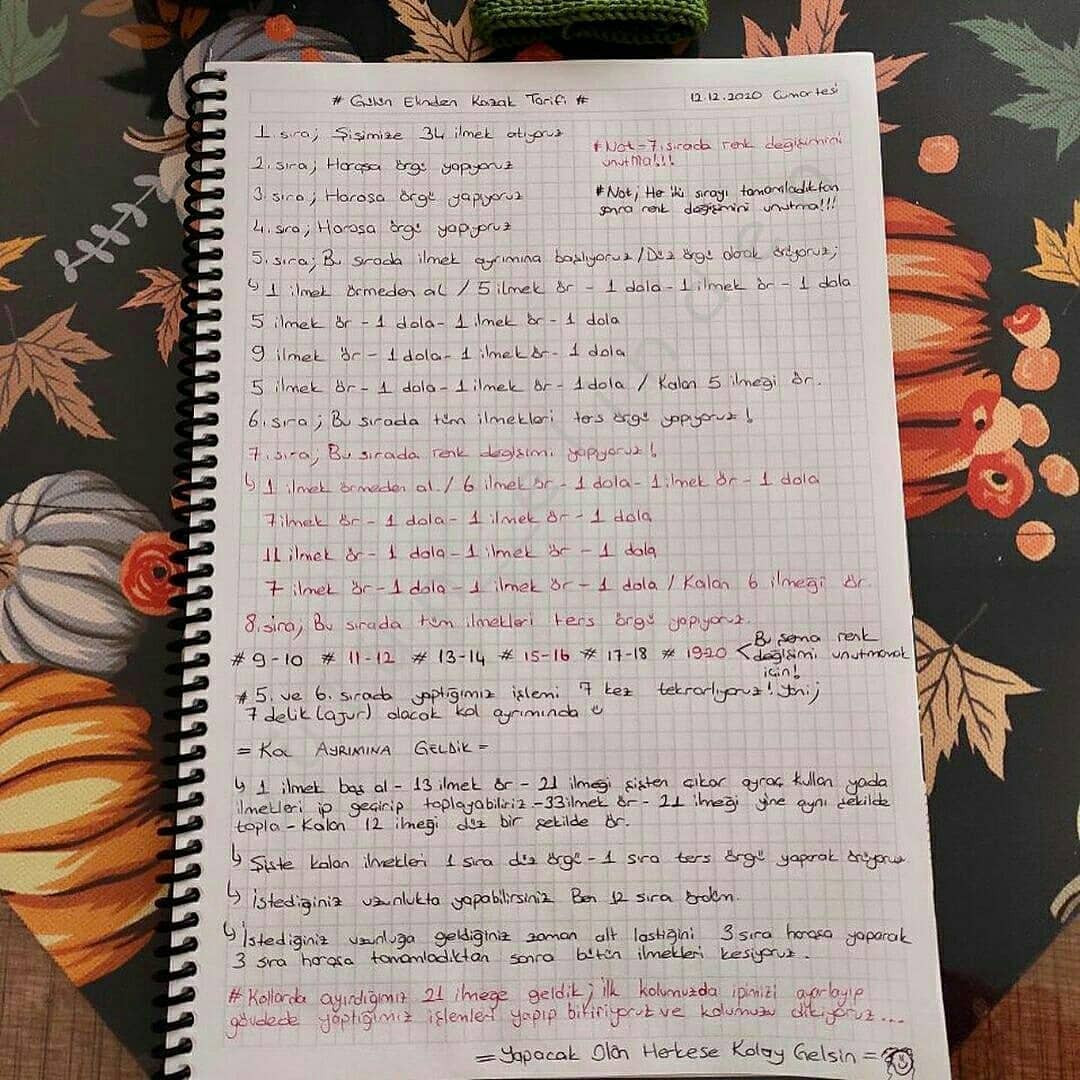 # Gülün Elinden Kazak Tarifi #
12.12.2020 Cumartesi
1. sıra; Şişimize 34 ilmek atıyoruz
# Not = 7. sırada renk değişimini
unutma!!!
2. sıra; Haroşa örgü yapıyoruz
3. sıra; Haroşa örgü yapıyoruz
# Not; Her iki sırayı tamamladıktan
sonra renk değişimini unutma!!!
4. sıra; Haroşa örgü yapıyoruz
5. sıra; Bu sırada ilmek ayrımına başlıyoruz / Düz örgü olarak örüyoruz;
↳ 1 ilmek örmeden al / 5 ilmek ör - 1 dola - 1 ilmek ör - 1 dola
5 ilmek ör - 1 dola - 1 ilmek ör - 1 dola
9 ilmek ör - 1 dola - 1 ilmek ör - 1 dola
5 ilmek ör - 1 dola - 1 ilmek ör - 1 dola / Kalan 5 ilmeği ör.
6. sıra; Bu sırada tüm ilmekleri ters örgü yapıyoruz!
7. sıra; Bu sırada renk değişimi yapıyoruz!
↳ 1 ilmek örmeden al. / 6 ilmek ör - 1 dola - 1 ilmek ör - 1 dola
7 ilmek ör - 1 dola - 1 ilmek ör - 1 dola
11 ilmek ör - 1 dola - 1 ilmek ör - 1 dola
7 ilmek ör - 1 dola - 1 ilmek ör - 1 dola / Kalan 6 ilmeği ör.
8. sıra; Bu sırada tüm ilmekleri ters örgü yapıyoruz.
# 9-10 # 11-12 # 13-14 # 15-16 # 17-18 # 1920 < Bu şema renk
değişimi unutmamak
için!
# 5. ve 6. sırada yaptığımız işlemi 7 kez tekrarlıyoruz! Yani;
7 delik (ajur) olacak kol ayrımında
= KOL AYRIMINA GELDİK =
↳ 1 ilmek boş al - 13 ilmek ör - 21 ilmeği şişten çıkar ayraç kullan yada
ilmekleri ip geçirip toplayabiliriz - 33 ilmek ör - 21 ilmeği yine aynı şekilde
topla - Kalan 12 ilmeği düz bir şekilde ör.
↳ Şişte kalan ilmekleri 1 sıra düz örgü - 1 sıra ters örgü yaparak örüyoruz.
↳ İstediğiniz uzunlukta yapabilirsiniz Ben 12 sıra ördüm.
↳ İstediğiniz uzunluğa geldiğiniz zaman alt lastiğini 3 sıra haroşa yaparak
3 sıra haroşa tamamladıktan sonra bütün ilmekleri kesiyoruz.
# Kollarda ayırdığımız 21 ilmeğe geldik; ilk kolumuzda ipimizi ayarlayıp
gövdede yaptığımız işlemleri yapıp bitiriyoruz ve kolumuzu dikiyoruz...
= Yapacak Olan Herkese Kolay Gelsin =